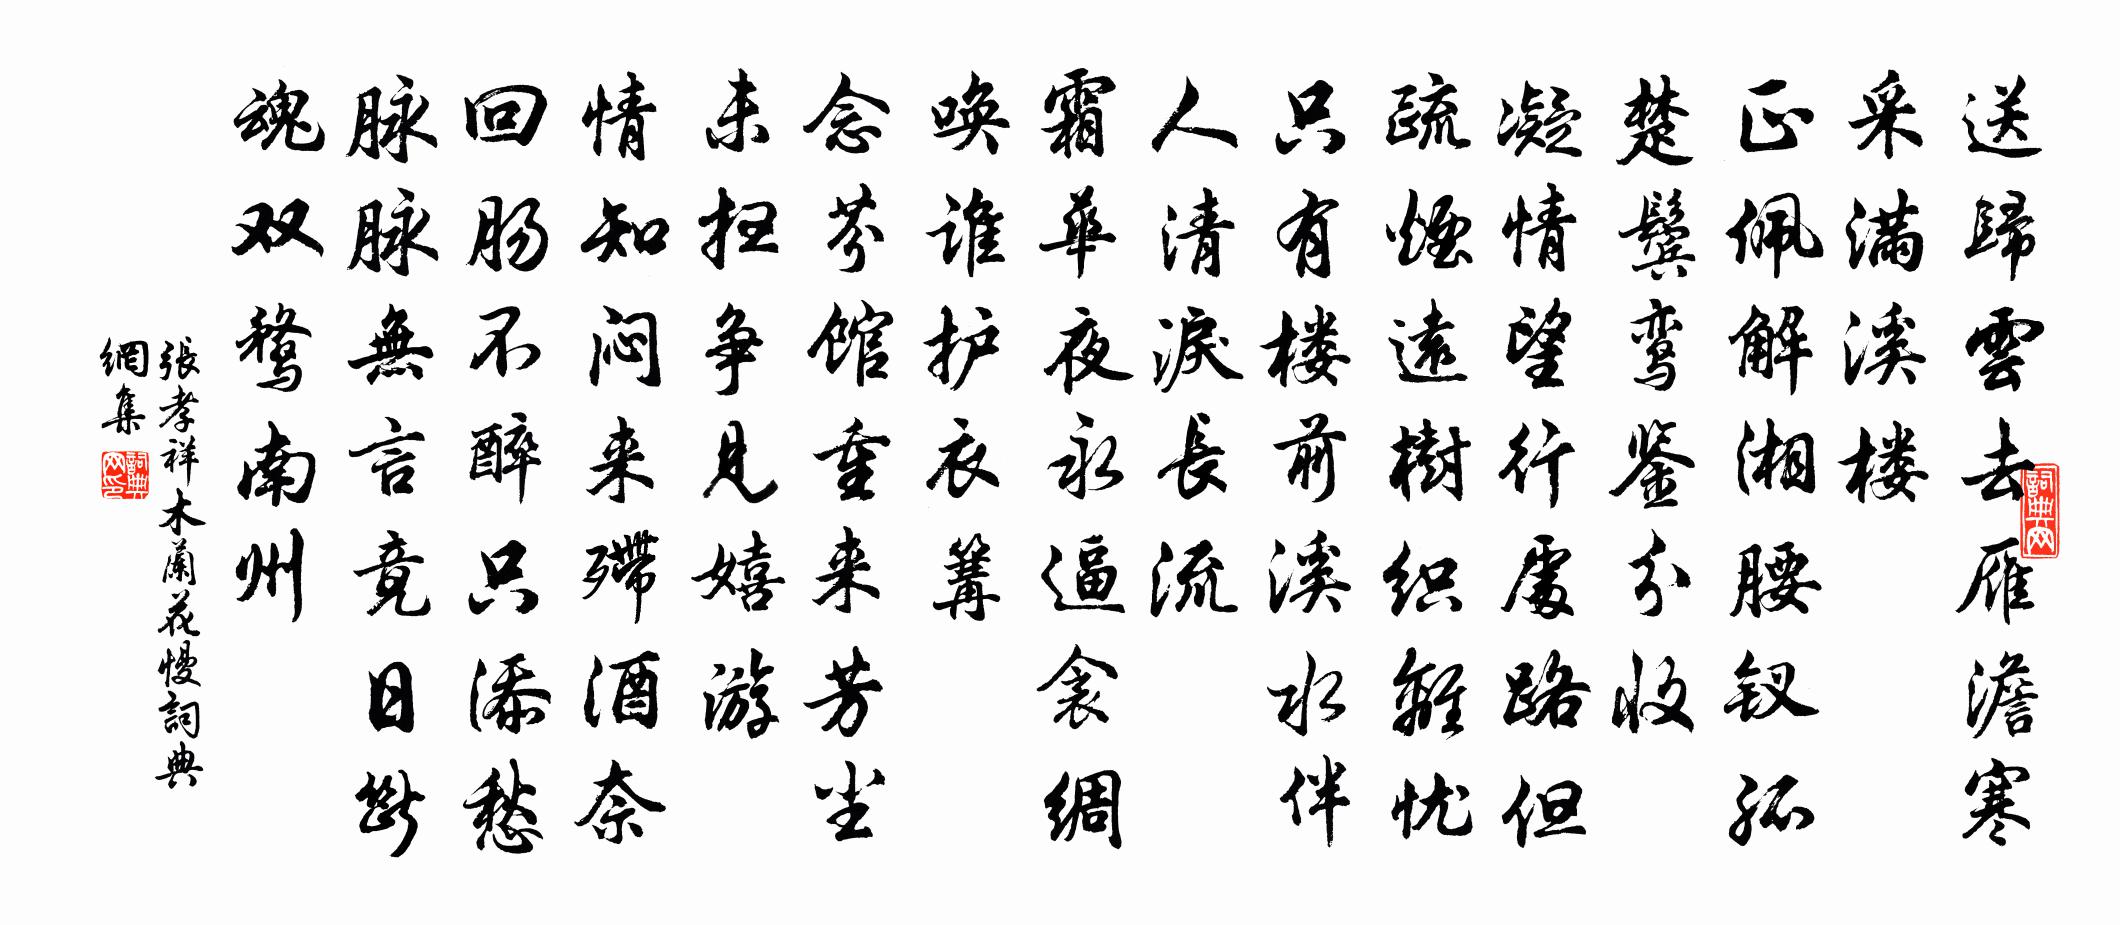 送歸雲去雁澹寒
采满溪楼
正佩解湘腰钗孤
楚鬓鸾鉴分收
凝情望行處路但
疏煙遠樹织離忧
只有楼前溪水伴
人清淚長流
霜華夜永逼衾绸
唤谁护衣篝
念芬馆重来芳尘
未扫争見嬉游
情知闷来殢酒奈
回肠不醉只添愁
脉脉無言竟日斷
魂双鹜南州
張孝祥木蘭花慢詞典
網集
詞典网